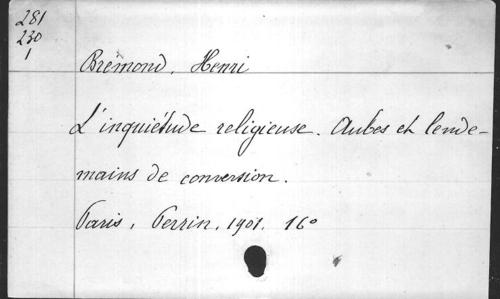 281
230
1
Bremond, Henri
L'inquiétude religieuse. Aubes et lende-
mains de conversion.
Paris, Perrin, 1901. 16°